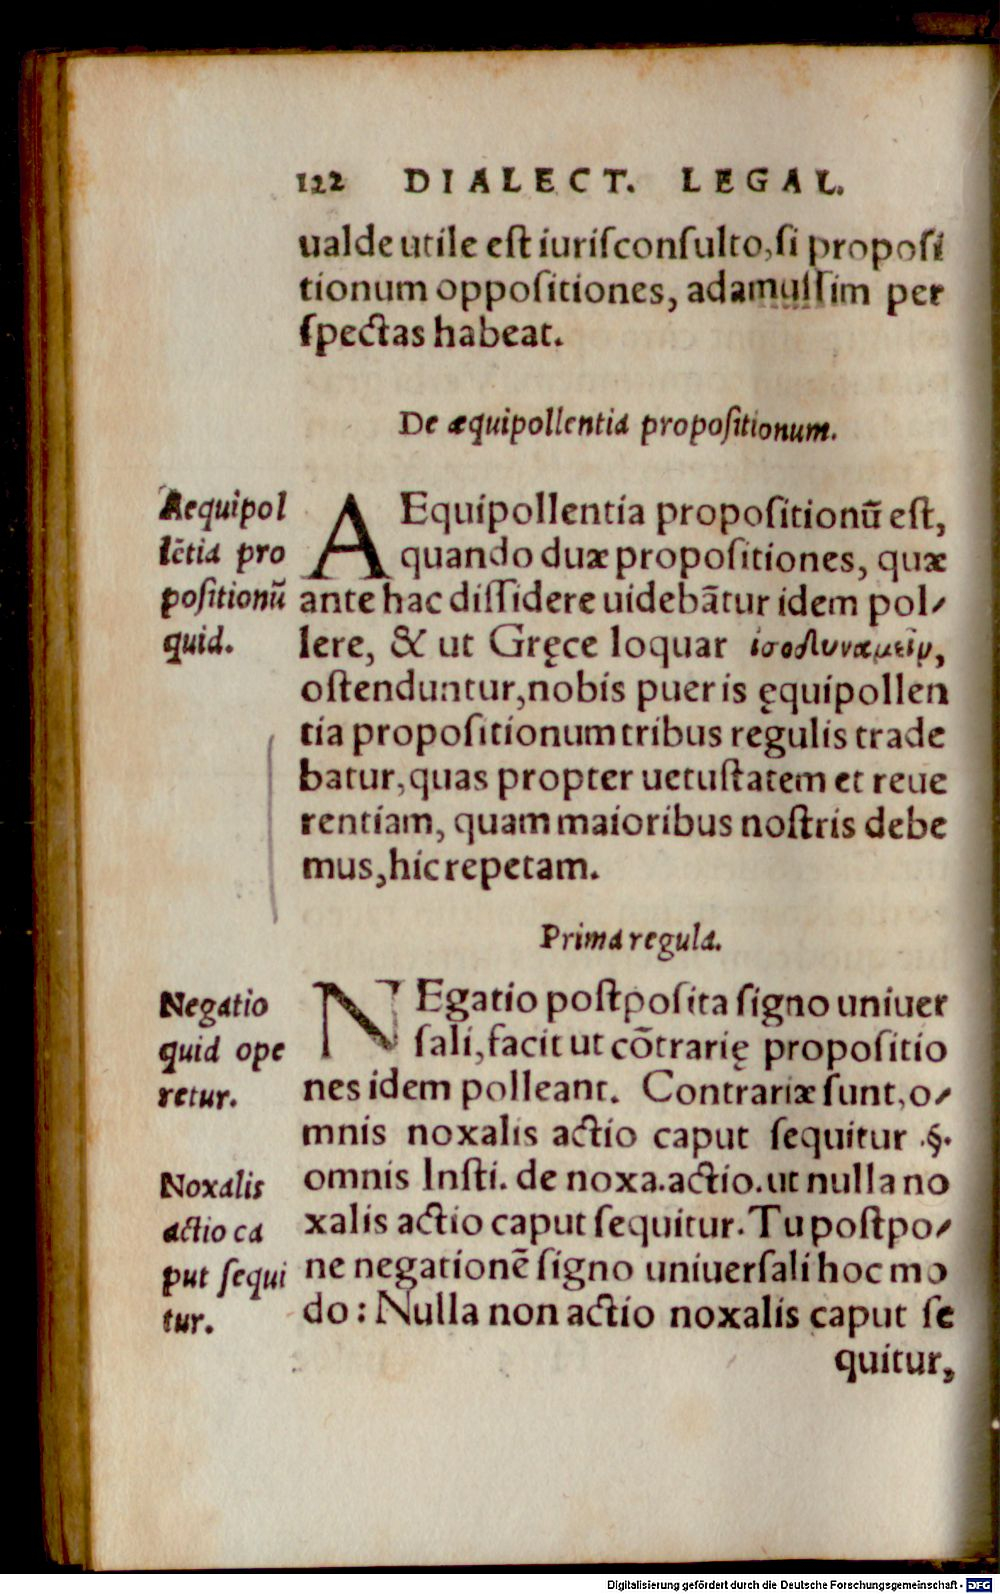 122 DIALECT. LEGAL.
ualde utile est iuriſconſulto, ſi propoſi
tionum oppoſitiones, adamuſſim per
ſpectas habeat.
De æquipollentia propoſitionum.
Aequipol
lẽtia pro
poſitionũ
quid.
AEquipollentia propoſitionũ eſt,
quando duæ propoſitiones, quæ
ante hac diſſidere uidebãtur idem pol-
lere, & ut Gręce loquar ἰσοδυναμεῖν,
oſtenduntur, nobis pueris ęquipollen
tia propoſitionum tribus regulis trade
batur, quas propter uetuſtatem et reue
rentiam, quam maioribus noſtris debe
mus, hic repetam.
Prima regula.
Negatio
quid ope
retur.
NEgatio poſtpoſita ſigno uniuer
ſali, facit ut cõtrarię propoſitio
nes idem polleant. Contrariæ ſunt, o-
mnis noxalis actio caput ſequitur .§.
omnis Inſti. de noxa. actio. ut nulla no
xalis actio caput ſequitur. Tu poſtpo-
ne negationẽ ſigno uniuerſali hoc mo
do: Nulla non actio noxalis caput ſe
Noxalis
actio ca
put ſequi
tur.
quitur,
Digitalisierung gefördert durch die Deutsche Forschungsgemeinschaft - DFG